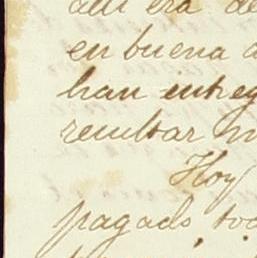 alli era de
en buena
han entreg
resultar
Hoy
pagado to